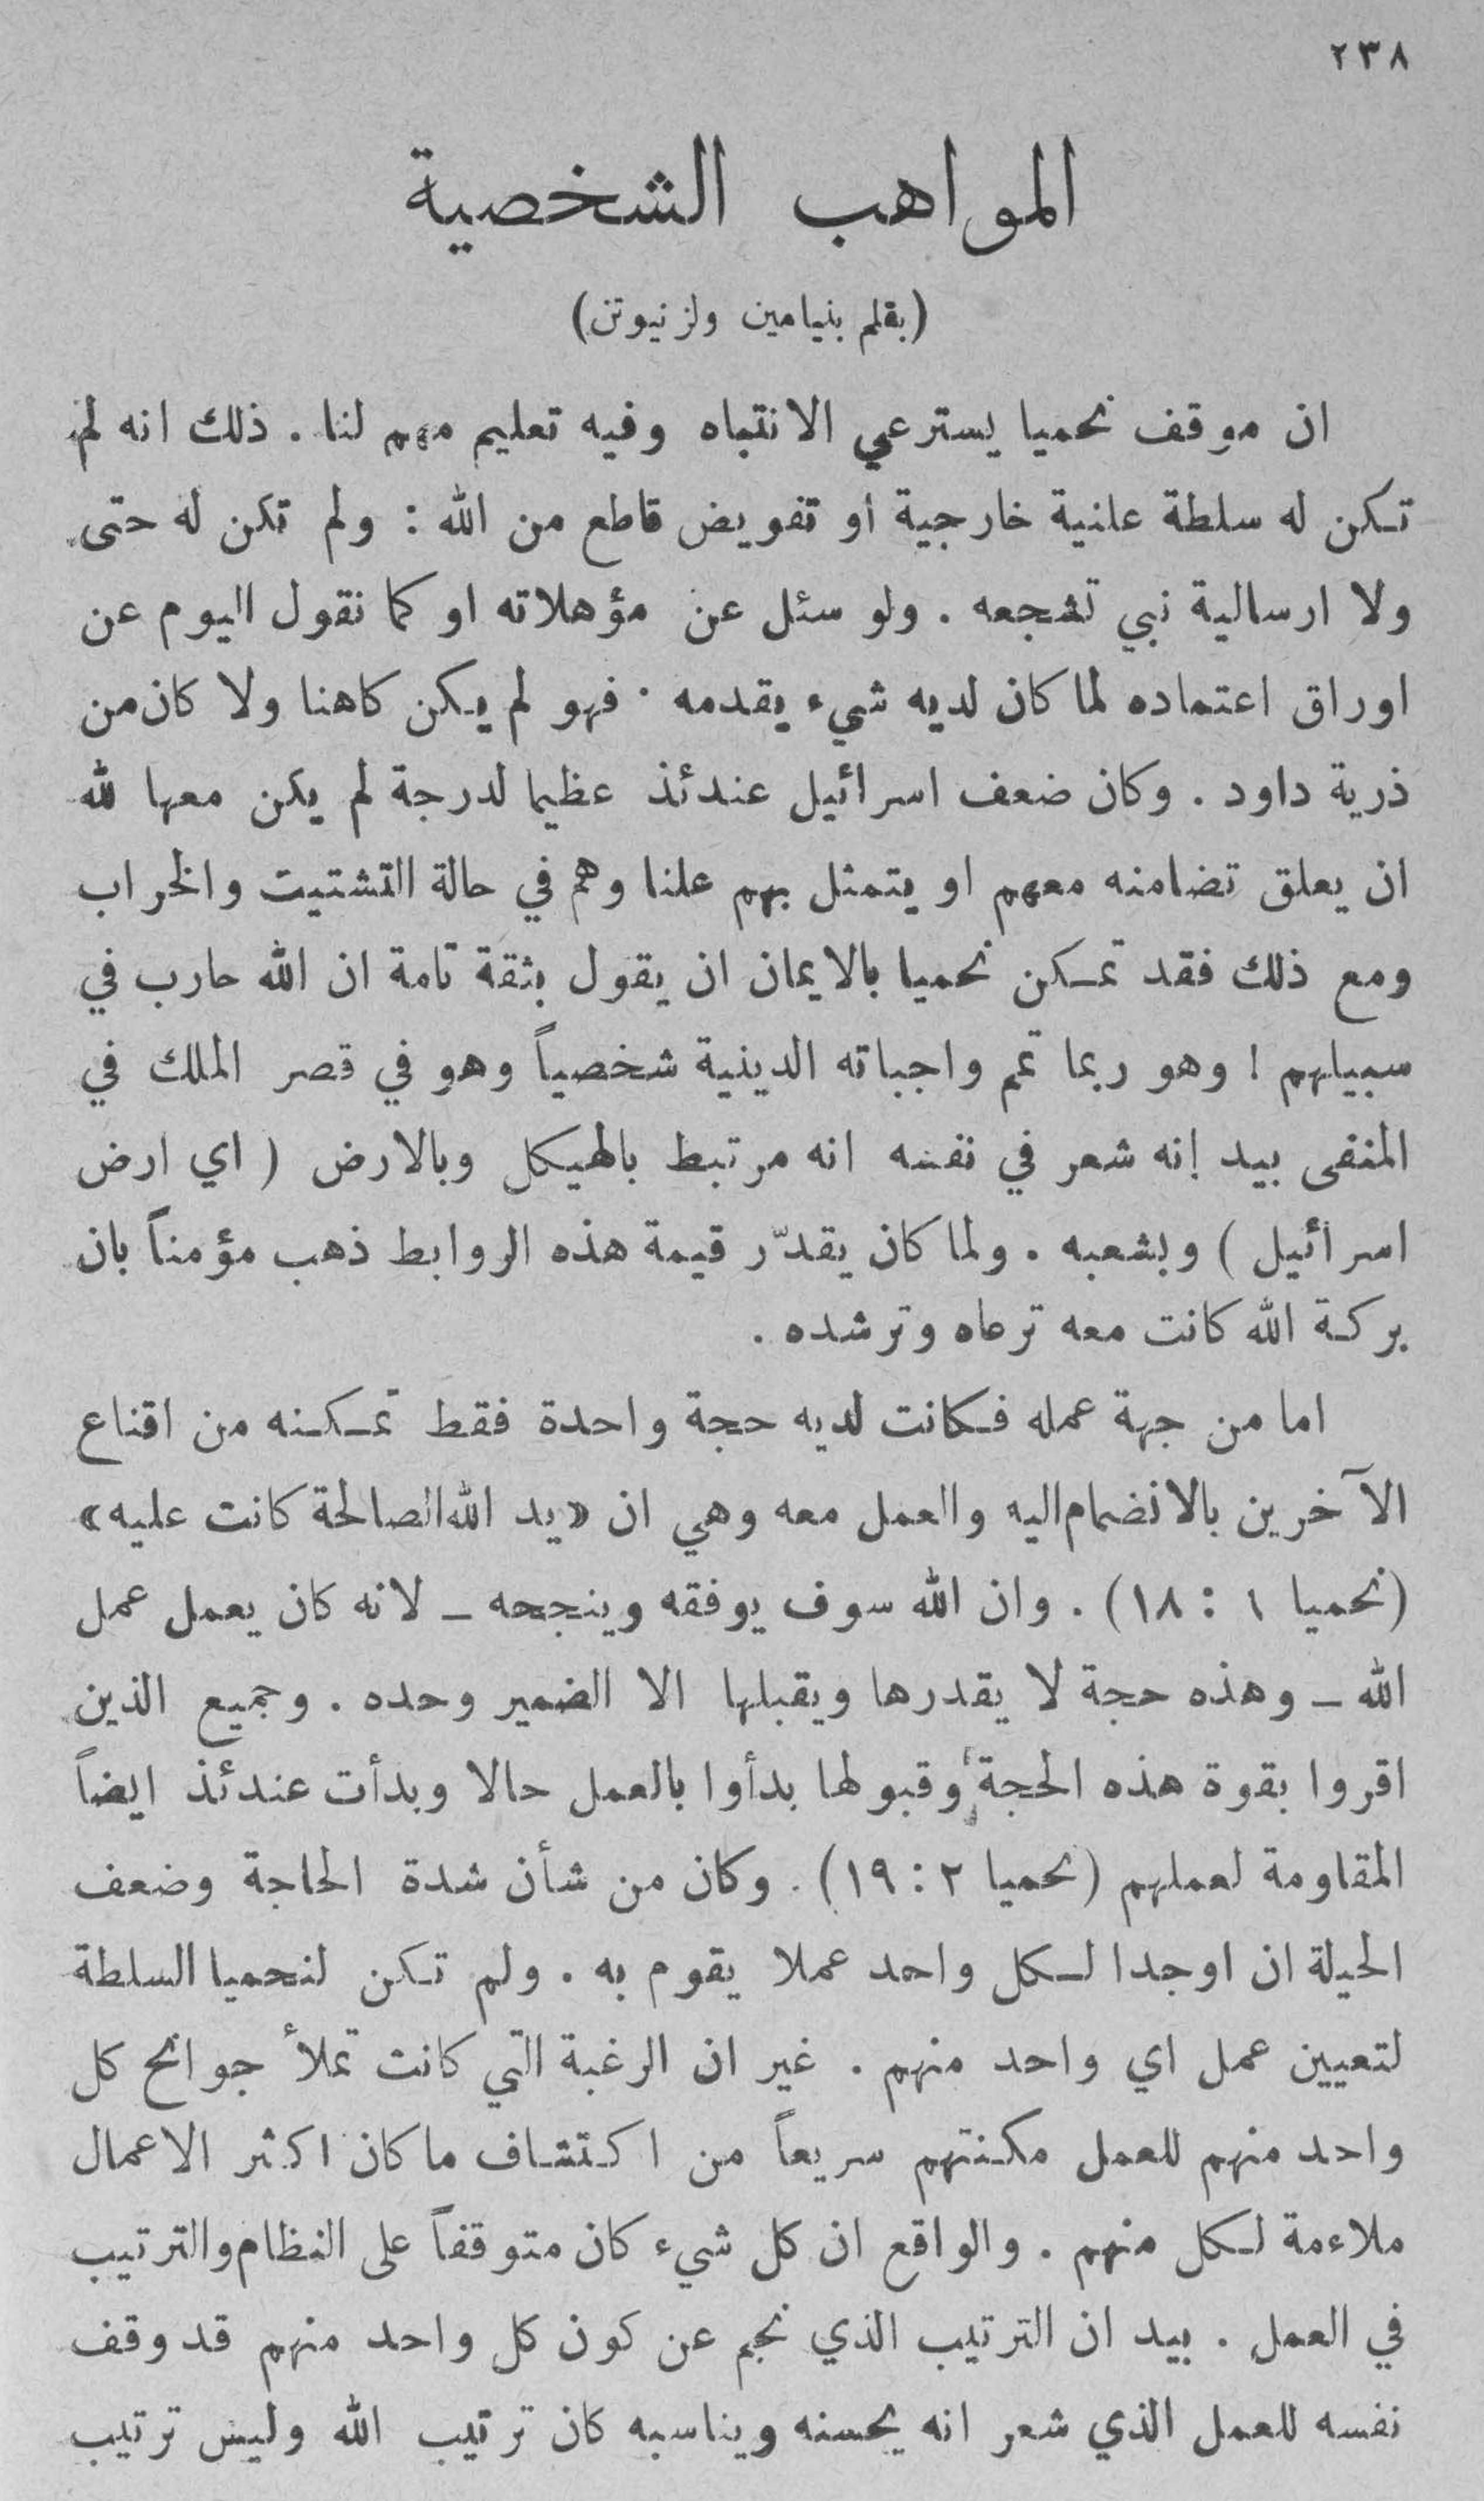 ٢٣٨
المواهب الشخصية
(بقلم بنيامين ولز نيوتن)
ان موقف نحميا يسترعي الانتباه وفيه تعليم مهم لنا . ذلك انه لم
تكن له سلطة علنية خارجية أو تفويض قاطع من الله : ولم تكن له حتى
ولا ارسالية نبي تشجعه . ولو سئل عن مؤهلاته او كما نقول اليوم عن
اوراق اعتماده لما كان لديه شيء يقدمه . فهو لم يكن كاهنا ولا كان من
ذرية داود . وكان ضعف اسرائيل عندئذ عظيما لدرجة لم يكن معها لله
ان يعلق تضامنه معهم او يتمثل بهم علنا وهم في حالة التشتيت والخراب
ومع ذلك فقد تمكن نحميا بالايمان ان يقول بثقة تامة ان الله حارب في
سبيلهم ! وهو ربما تمم واجباته الدينية شخصياً وهو في قصر الملك في
المنفى بيد إنه شعر في نفسه انه مرتبط بالهيكل وبالارض ( اي ارض
اسرائيل ) وبشعبه . ولما كان يقدّر قيمة هذه الروابط ذهب مؤمناً بان
بركة الله كانت معه ترعاه وترشده .
اما من جهة عمله فكانت لديه حجة واحدة فقط تمكنه من اقناع
الآخرين بالانضمام اليه والعمل معه وهي ان «يد الله الصالحة كانت عليه»
(نحميا ١ : ١٨) . وان الله سوف يوفقه وينجحه ـ لانه كان يعمل عمل
الله ـ وهذه حجة لا يقدرها ويقبلها الا الضمير وحده . وجميع الذين
اقروا بقوة هذه الحجة وقبولها بدأوا بالعمل حالا وبدأت عندئذ ايضاً
المقاومة لعملهم (نحميا ٢ : ١٩) . وكان من شأن شدة الحاجة وضعف
الحيلة ان اوجدا لكل واحد عملا يقوم به . ولم تكن لنحميا السلطة
لتعيين عمل اي واحد منهم . غير ان الرغبة التي كانت تملأ جوانح كل
واحد منهم للعمل مكنتهم سريعاً من اكتشاف ما كان اكثر الاعمال
ملاءمة لكل منهم . والواقع ان كل شيء كان متوقفاً على النظام والترتيب
في العمل . بيد ان الترتيب الذي نجم عن كون كل واحد منهم قد وقف
نفسه للعمل الذي شعر انه يحسنه ويناسبه كان ترتيب الله وليس ترتيب